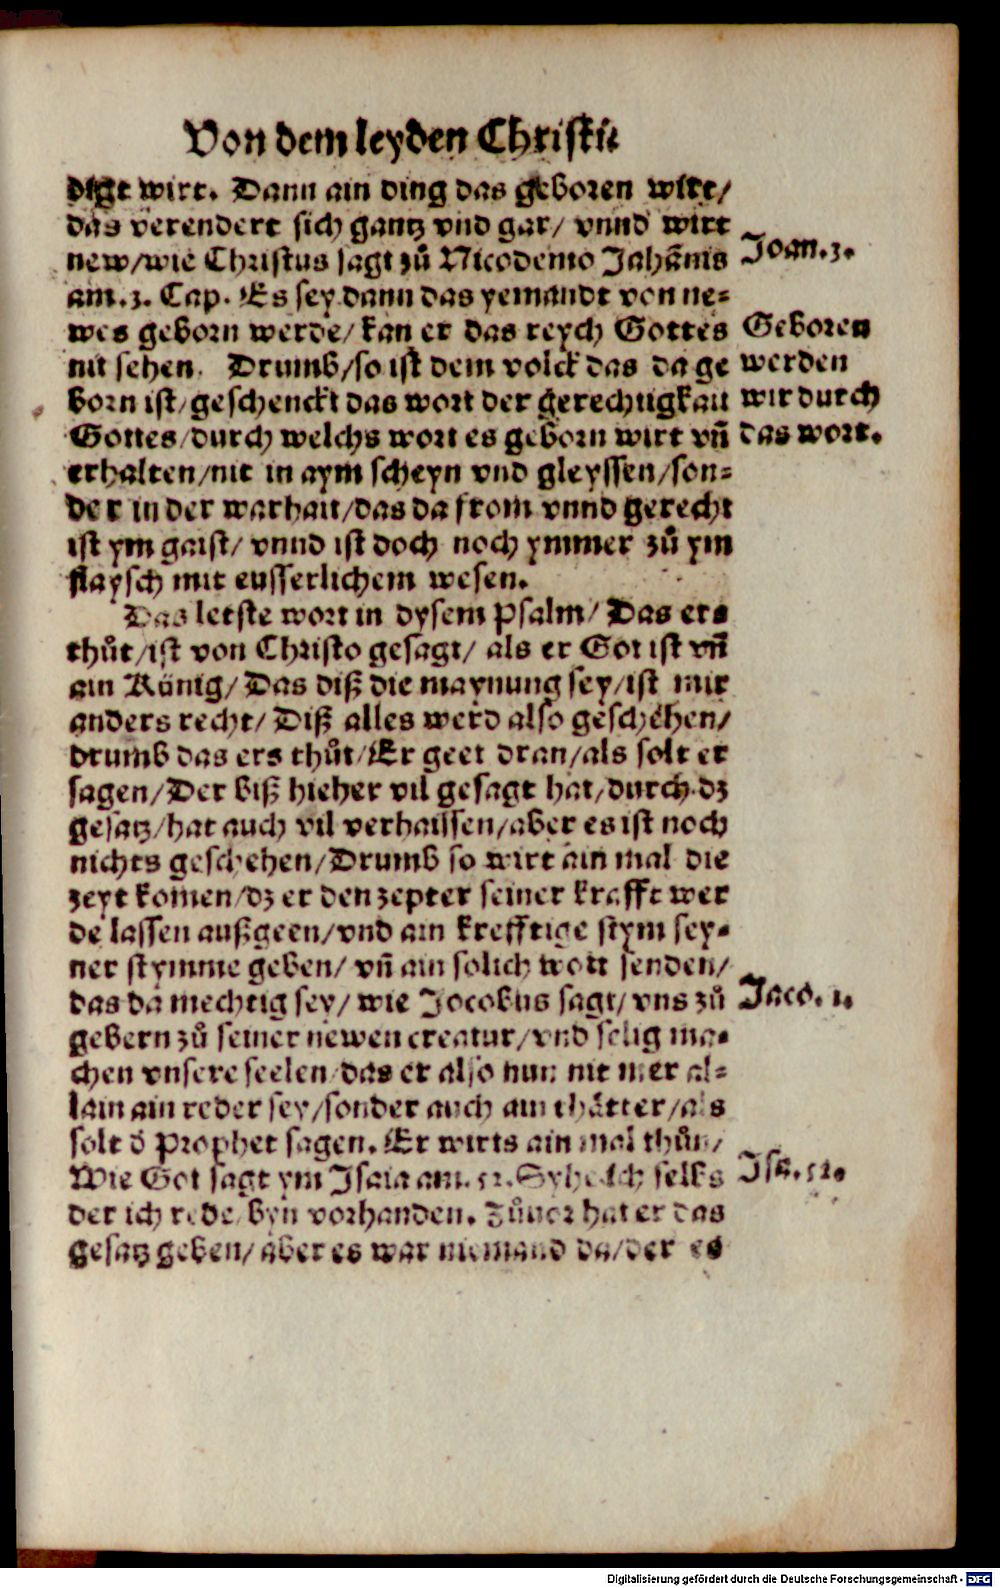 Von dem leyden Christi
digt wirt. Dann ain ding das geboren wirt/
das verendert sich gantz vnd gar/ vnnd wirt
new/wie Christus sagt zů Nicodemo Jahãnis
am.3. Cap. Es sey dann das yemandt von ne=
wes geborn werde/kan er das reych Gottes
nit sehen. Drumb/so ist dem volck das da ge
born ist/geschenckt das wort der gerechtigkait
Gottes/durch welchs wort es geborn wirt vñ
erhalten/nit in aym scheyn vnd gleyssen/son=
der in der warhait/das da from vnnd gerecht
ist ym gaist/ vnnd ist doch noch ymmer zů ym
flaysch mit eusserlichem wesen.
Das letste wort in dysem Psalm/ Das ers
thůt/ist von Christo gesagt/ als er Got ist vñ
ain Künig/ Das diß die maynung sey/ist mir
anders recht/ Diß alles werd also geschehen/
drumb das ers thůt/Er geet dran/als solt er
sagen/Der biß hieher vil gesagt hat/durch dz
gesatz/hat auch vil verhaissen/aber es ist noch
nichts geschehen/Drumb so wirt ain mal die
zeyt komen/dz er den zepter seiner krafft wer
de lassen außgeen/vnd ain krefftige stym sey=
ner stymme geben/ vñ ain solich wott senden/
das da mechtig sey/ wie Jocobus sagt/ vns zů
gebern zů seiner newen creatur/vnd selig ma=
chen vnsere seelen/das er also nun nit mer al=
lain ain reder sey/sonder auch ain thätter/als
solt ð Prophet sagen. Er wirts ain mal thůn/
Wie Got sagt ym Isaia am. 52. Syhe ich selbs
der ich rede/ byn vorhanden. Zůuor hat er das
gesatz geben/ aber es war niemand da/der es
Joan.3.
Geboren
werden
wir durch
das wort.
Jaco. 1.
Isa. 52.
Digitalisierung gefördert durch die Deutsche Forschungsgemeinschaft - DFG